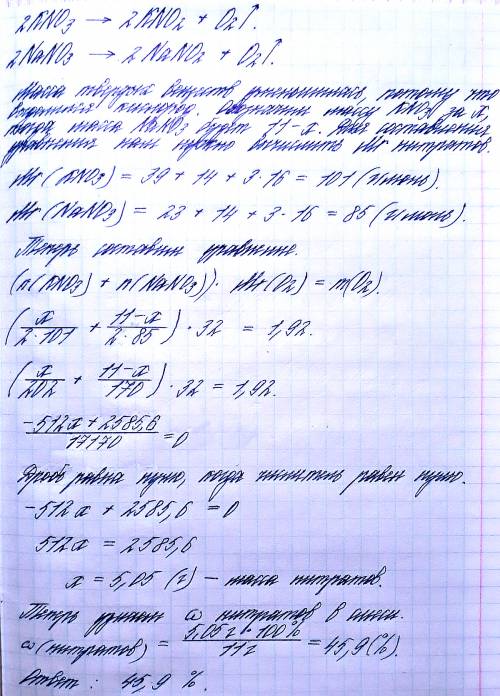 2KNO₃ → 2KNO₂ + O₂↑.
2NaNO₃ → 2NaNO₂ + O₂↑.
Масса твёрдых веществ уменьшилась, потому что
выделился кислород. Обозначим массу KNO₃ за x,
тогда масса NaNO₃ будет 11-x. Для составления
уравнения нам нужно вычислить Mr нитратов.
Mr(KNO₃) = 39 + 14 + 3·16 = 101 (г/моль).
Mr(NaNO₃) = 23 + 14 + 3·16 = 85 (г/моль).
Теперь составим уравнение.
(n(KNO₃) + n(NaNO₃))· Mr(O₂) = m(O₂).
(x/(2·101) + (11-x)/(2·85)) · 32 = 1,92.
(x/202 + (11-x)/170) · 32 = 1,92.
(-512x + 2585,6)/17170 = 0
Дробь равна нулю, когда числитель равен нулю.
-512x + 2585,6 = 0
512x = 2585,6
x = 5,05 (г) – масса нитратов.
Теперь ω нитратов в смеси.
ω(нитратов) = (5,05 г · 100%)/11г = 45,9(%).
Ответ: 45,9 %.